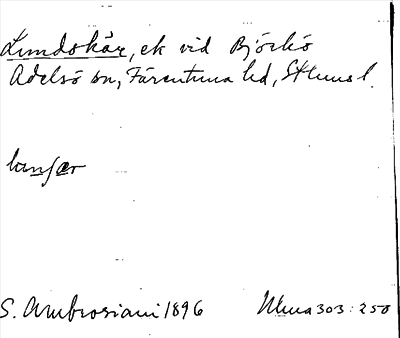 Lundskär, ek vid Björkö
Adelsö sn, Färentuna hd, Sthms l.
S. Ambrosiani 1896 Uma 303:250